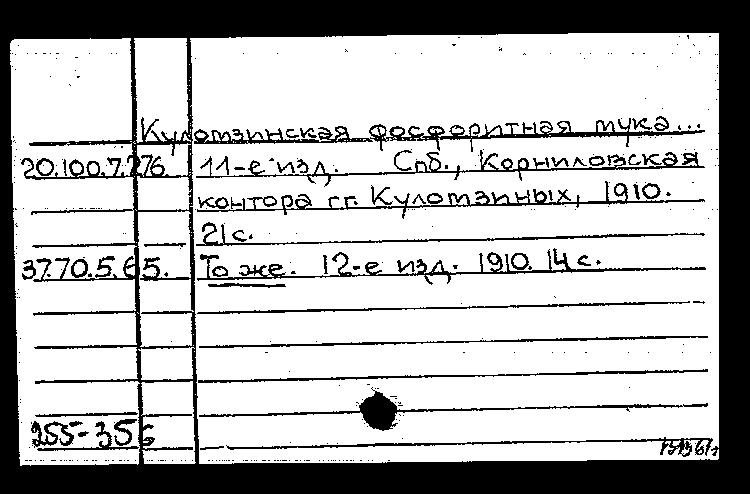 Куломзинская фосфоритная мука...
20.100.7.276. 11-е изд. Спб., Корниловская
контора г.г. Куломзиных, 1910.
21 с.
37.70.5.65. То же. 12-е изд. 1910. 14 с.
255-356